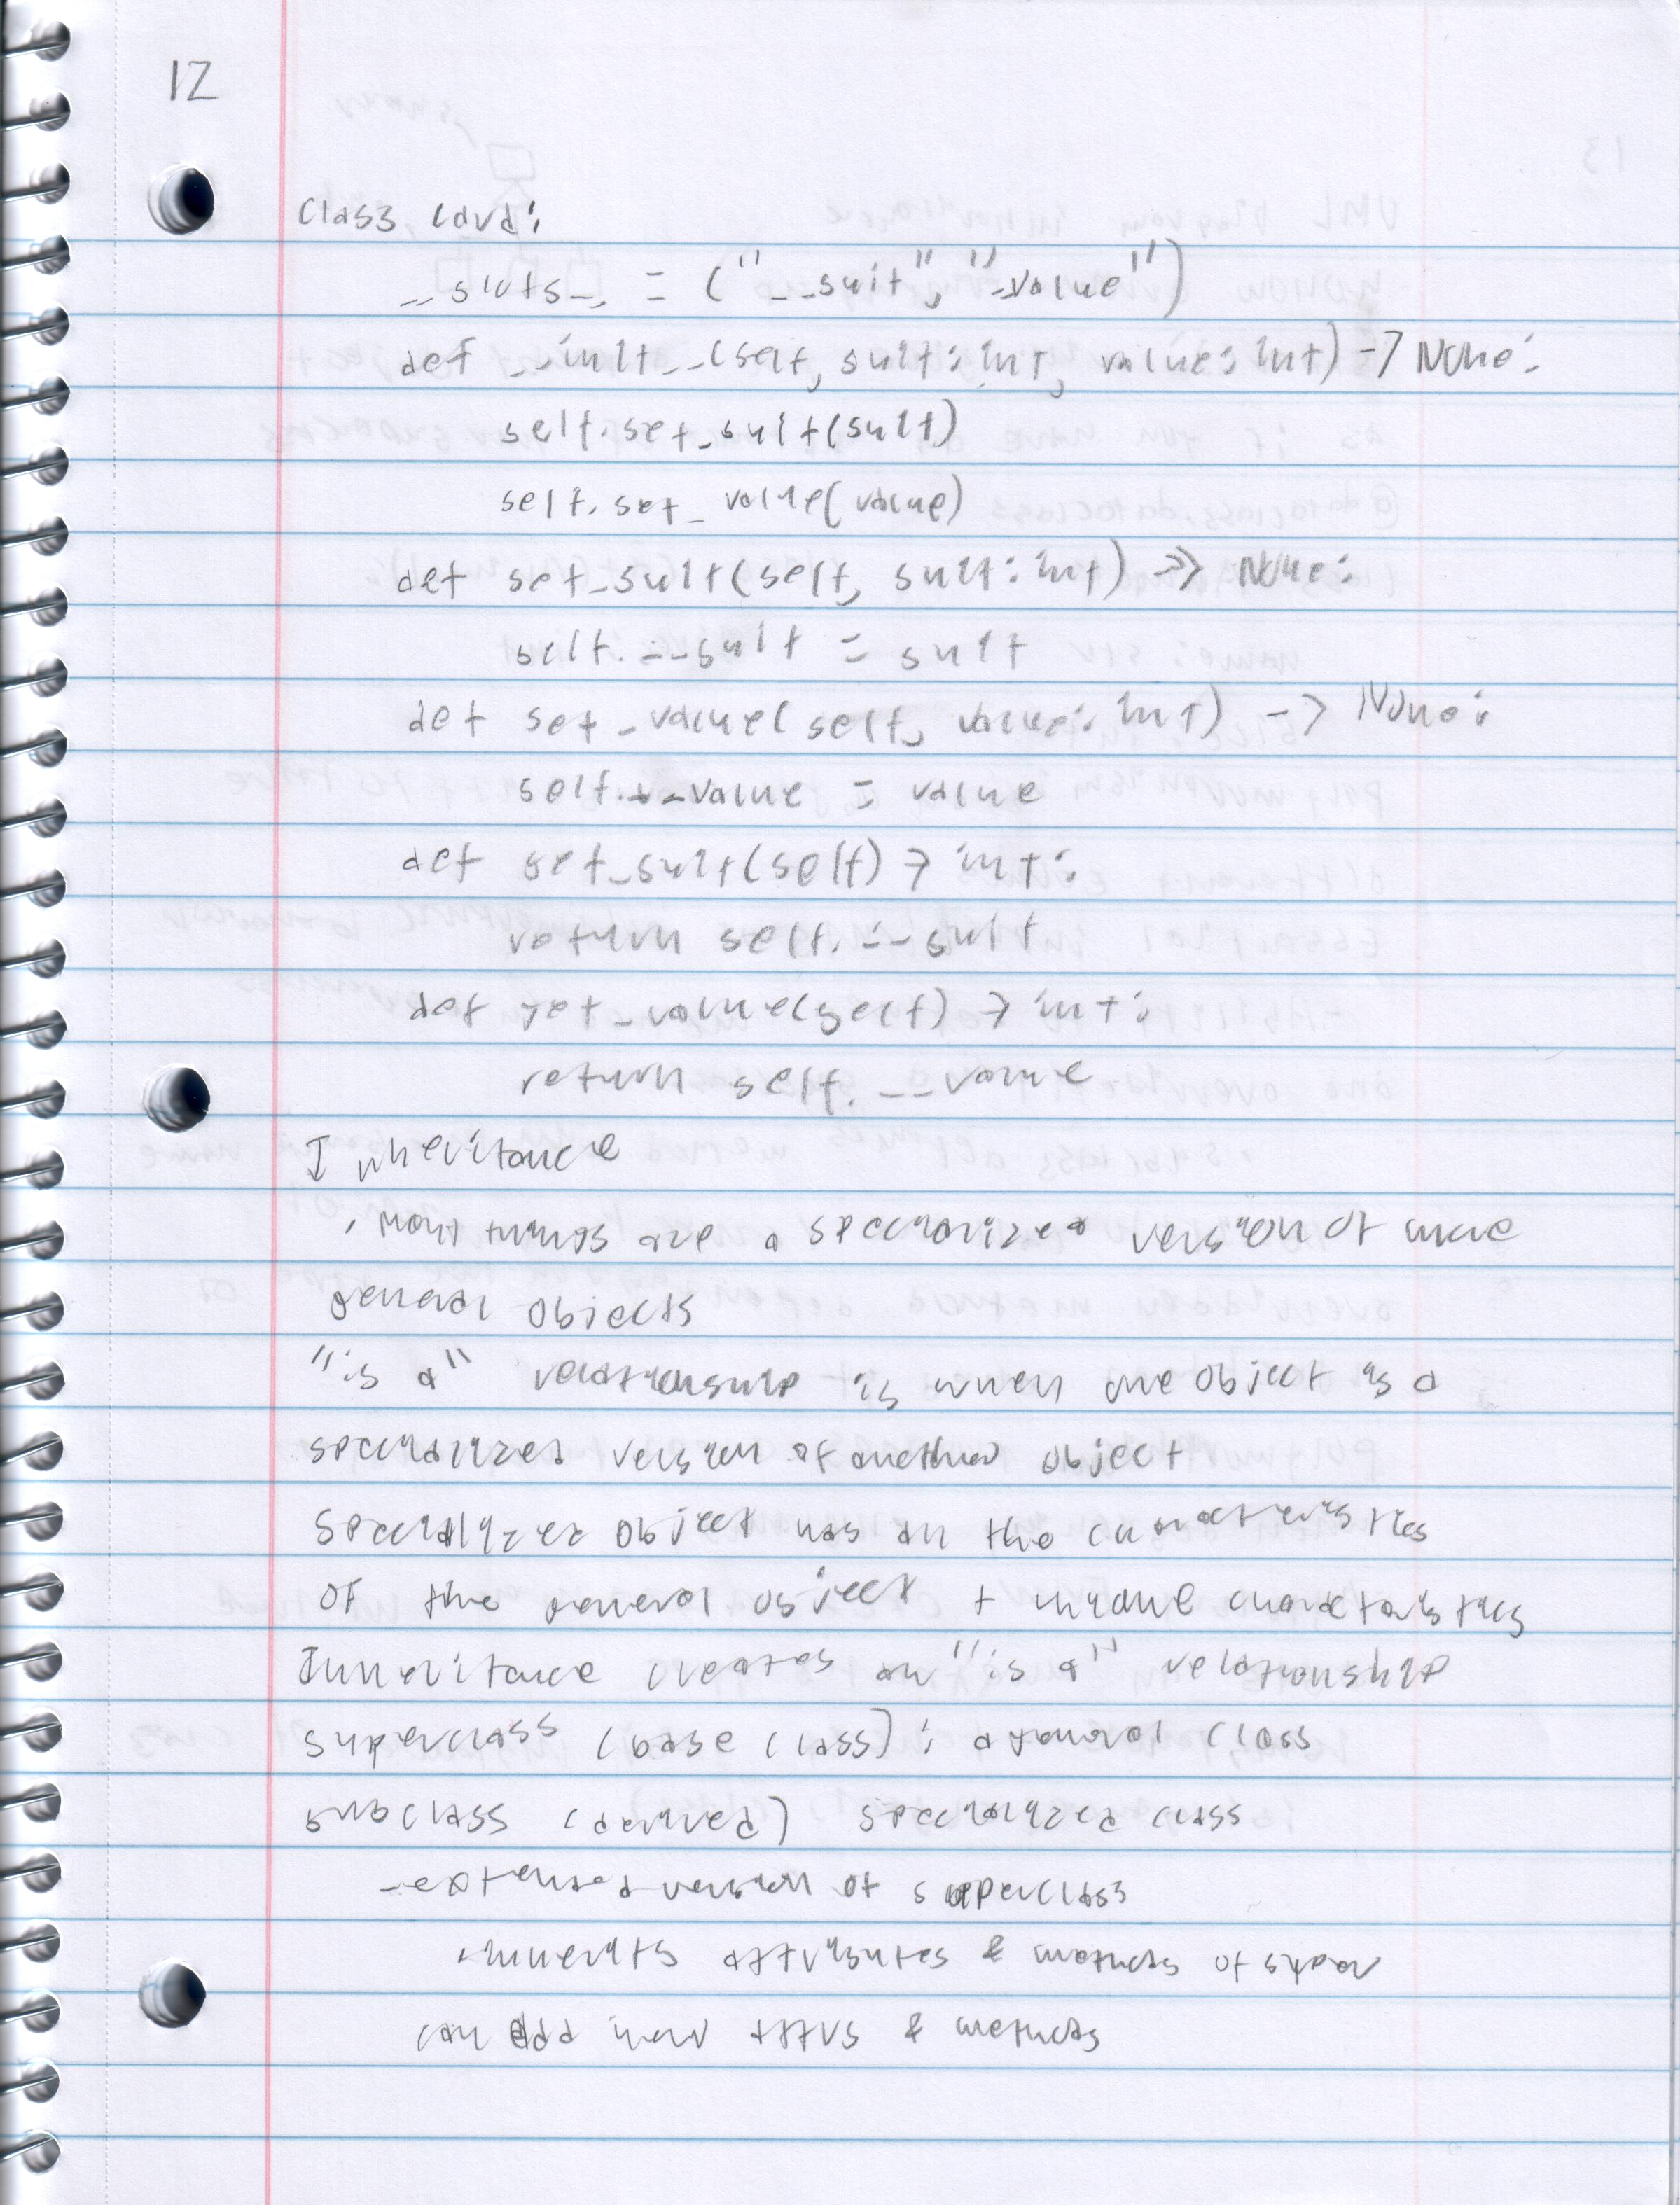 12
class Card:
__slots__ = ("__suit", "__value")
def __init__(self, suit: int, value: int) -> None:
self.set_suit(suit)
self.set_value(value)
def set_suit(self, suit: int) -> None:
self.__suit = suit
def set_value(self, value: int) -> None:
self.__value = value
def get_suit(self) -> int:
return self.__suit
def get_value(self) -> int:
return self.__value
Inheritance
, many things are a specialized version of more
general objects
"is a" relationship is when one object is a
specialized version of another object
specialized object has all the characteristics
of the general object + unique characteristics
Inheritance creates an "is a" relationship
superclass (base class): a general class
subclass (derived) specialized class
- extended version of superclass
- inherits attributes & methods of super
can add new attrs & methods